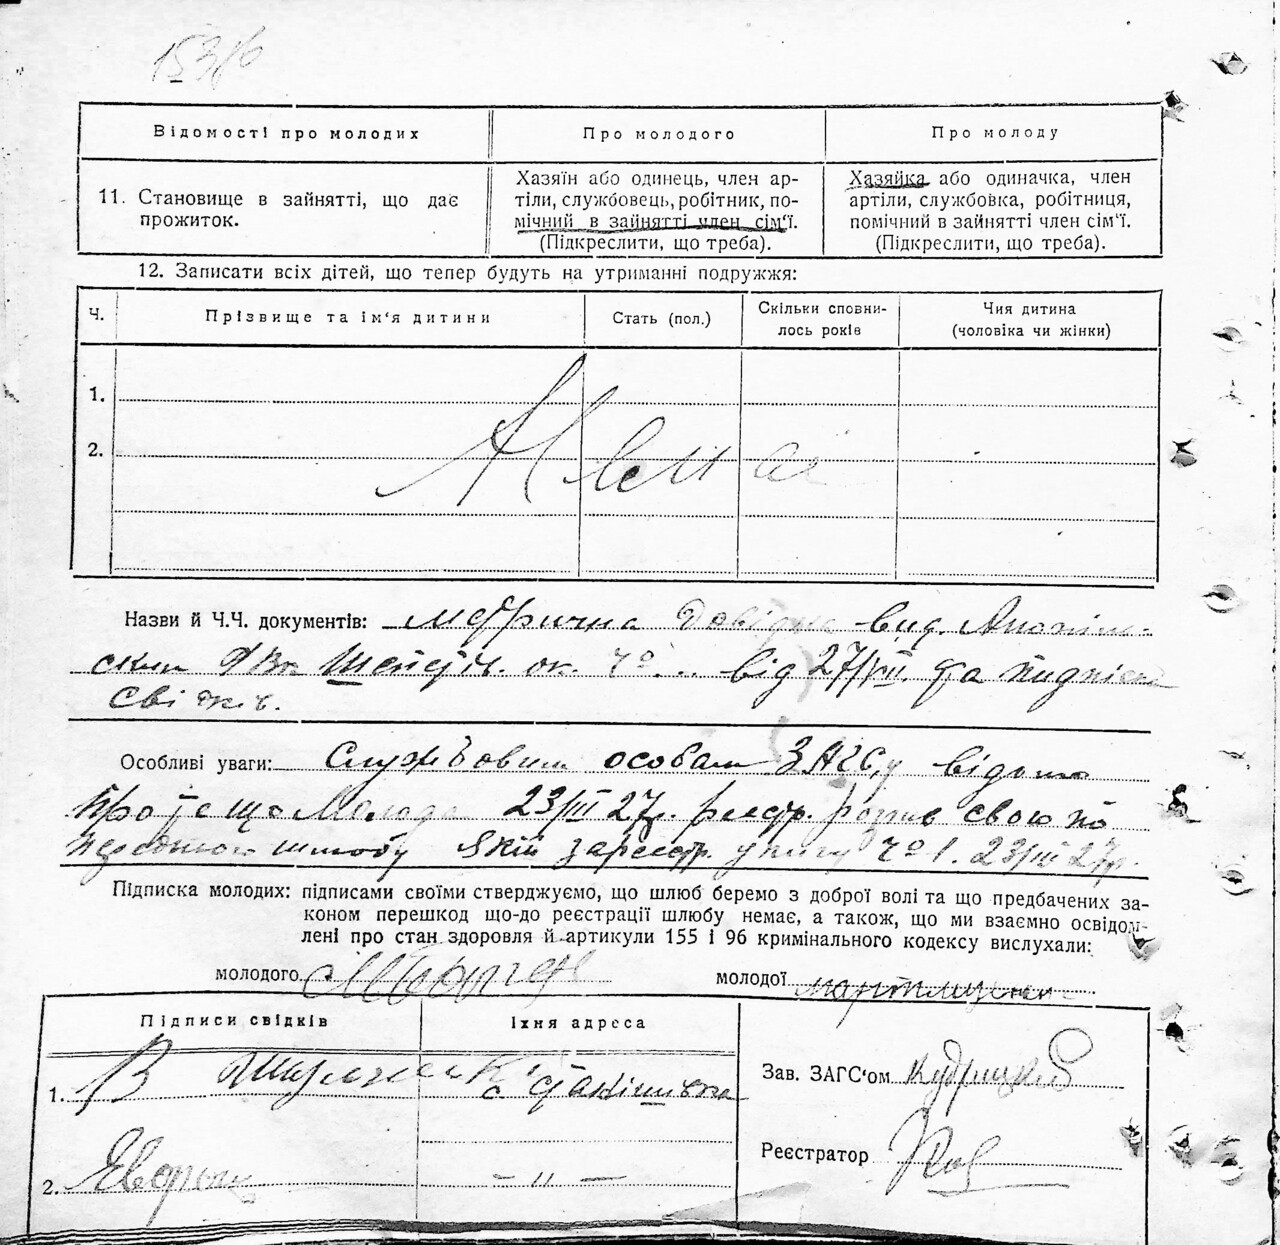 153/6
Відомості про молодих
Про молодого
Про молоду
11. Становище в зайнятті, що дає
прожиток.
Хазяїн або одинець, член ар-
тіли, службовець, робітник, по-
мічний в зайнятті член сім'ї.
(Підкреслити, що треба).
Хазяйка або одиначка, член
артіли, службовка, робітниця,
помічний в зайнятті член сім'ї.
(Підкреслити, що треба).
12. Записати всіх дітей, що тепер будуть на утриманні подружжя:
Ч.
Прізвище та ім'я дитини
Стать (пол.)
Скільки сповни-
лось років
Чия дитина
(чоловіка чи жінки)
1.
2.
Немає
Назви й Ч.Ч. документів: Метрична довідка вид.
ок. від 27/VII. та підписка
свідків.
Особливі уваги: Службовим особам ЗАГСу відомо
про те що Молода 23/III 27р. реєстр. розрив свого по
переднього шлюбу який зареєстр. у книгу Ч° 1. 23/III 27р.
Підписка молодих: підписами своїми стверджуємо, що шлюб беремо з доброї волі та що предбачених за-
коном перешкод що-до реєстрації шлюбу немає, а також, що ми взаємно освідом-
лені про стан здоровля й артикули 155 і 96 кримінального кодексу вислухали:
молодого
молодої
Підписи свідків
Їхня адреса
1.
2.
– „ –
Зав. ЗАГС'ом Кудрицкий
Реєстратор